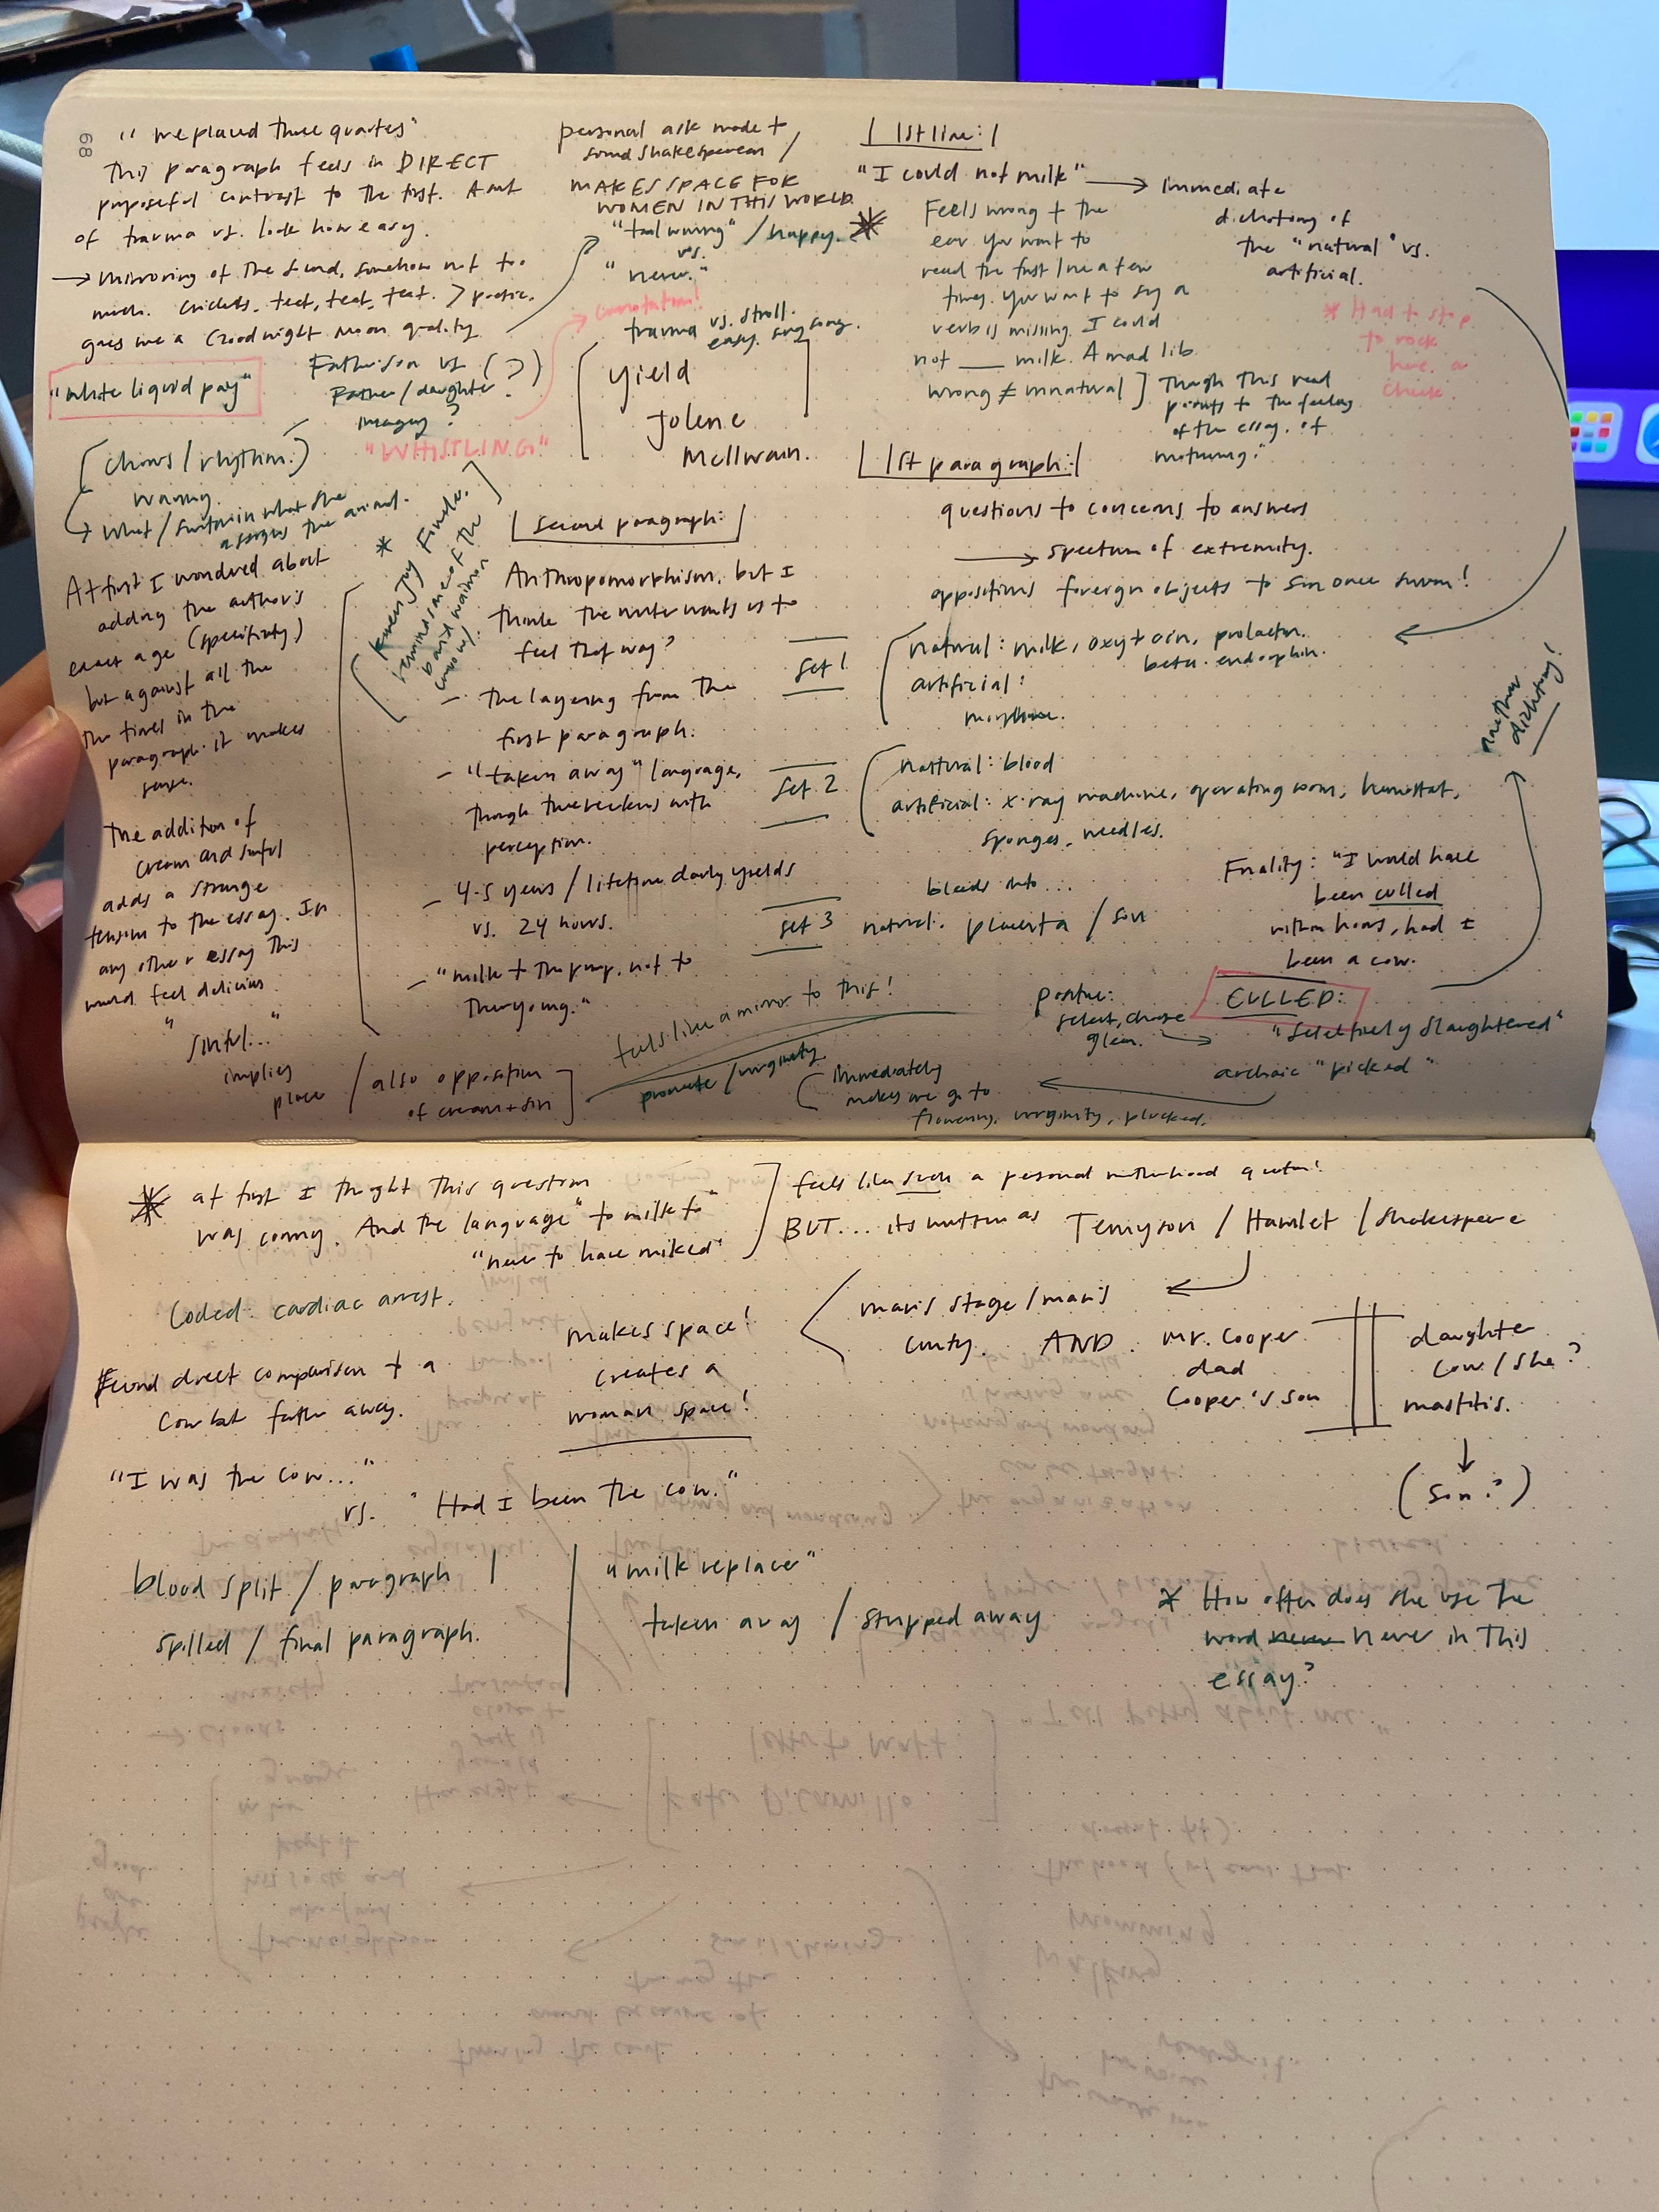 68
"we placed three quarters"
This paragraph feels in DIRECT
purposeful contrast to the first. A sort
of trauma vs. look how easy.
→ Mirroring of the sound, somehow not too
much. Crickets, teet, teet, teet. > poetic.
gives me a Goodnight Moon quality
"white liquid pay"
Father/son vs (?)
Father/daughter
imagery?
"WHISTLING"
(chores/rhythm:)
waiting.
At first I wondered about
adding the author's
exact age (specificity)
but against all the
times in the
paragraph it makes
sense.
The addition of
cream and sinful
adds a strange
tension to the essay. In
any other essay this
would feel delicious
"sinful..."
implies
place / also opposition
of cream + sin
personal ask made to
sound Shakespearean /
MAKES SPACE FOR
WOMEN IN THIS WORLD.
/ happy.
vs.
connotation!
trauma vs. stroll.
easy. sing song.
Yield
Jolene
McIlwain.
second paragraph:
Anthropomorphism, but I
think the writer wants us to
feel that way?
- the layering from the
first paragraph.
- "taken away" language,
though the reckons with
perception.
- 4-5 years / lifetime daily yields
vs. 24 hours.
- "milk to the pump, not to
the young."
feels like a mirror to this!
1st line:
"I could not milk" → immediate
dichotomy of
the "natural" vs.
artificial.
Feels wrong to the
ear. You want to
read the first line a few
times. You want to say a
verb is missing. I could
not ___ milk. A mad lib.
wrong ≠ unnatural] Though this read
points to the feeling
of the essay. of
mothering."
* Had to stop
to rock
here. a
check.
1st paragraph:
questions to concerns to answers
→ spectrum of extremity.
oppositions foreign objects to son once swam!
set 1
natural: milk, oxytocin, prolactin.
beta-endorphin.
artificial:
morphine.
set 2
natural: blood
artificial: x-ray machine, operating room, hemostat,
sponges, needles.
bleeds into...
set 3
natural: placenta / son
another
dichotomy!
Finality: "I would have
been culled
within hours, had I
been a cow.
CULLED:
positive:
select, choose
glean. →
"selectively slaughtered"
archaic "picked"
immediately
makes me go to
flowering, virginity, plucked.
* at first I thought this question
was corny. And the language "to milk to"
"never to have milked"
feels like such a personal motherhood question!
BUT... its written as Tennyson / Hamlet / Shakespeare
Coded: cardiac arrest.
makes space!
creates a
woman space!
man's stage / man's
AND Mr. Cooper
dad
Cooper's son
daughter
cow / she?
mastitis.
(son?)
second direct comparison to a
cow but farther away.
"I was the cow..."
vs. "Had I been the cow."
blood split / paragraph 1
spilled / final paragraph.
"milk replacer"
taken away / stripped away
* How often does she use the
word never in this
essay?